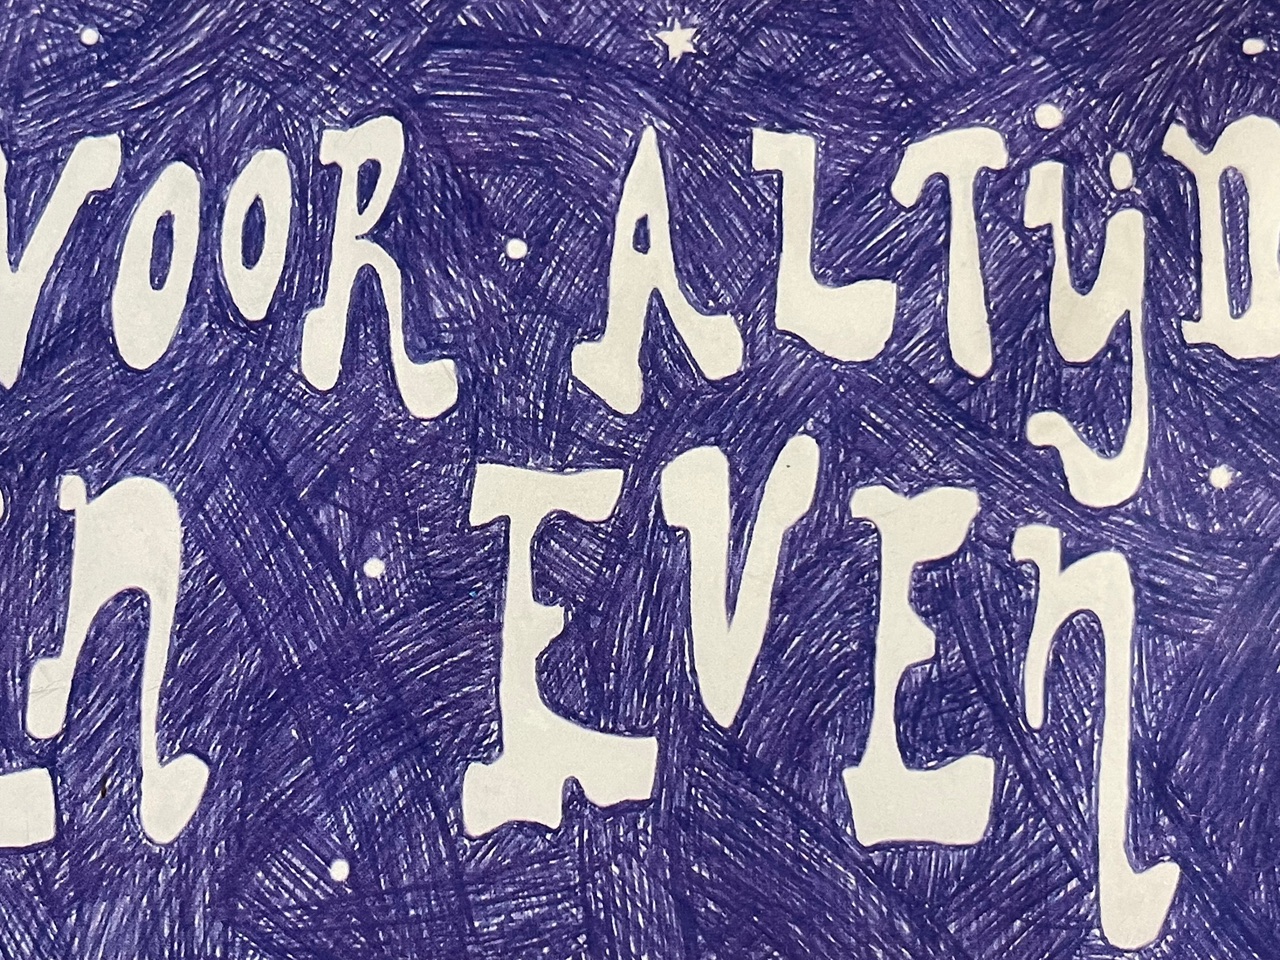 VOOR ALTijD
En EVEn